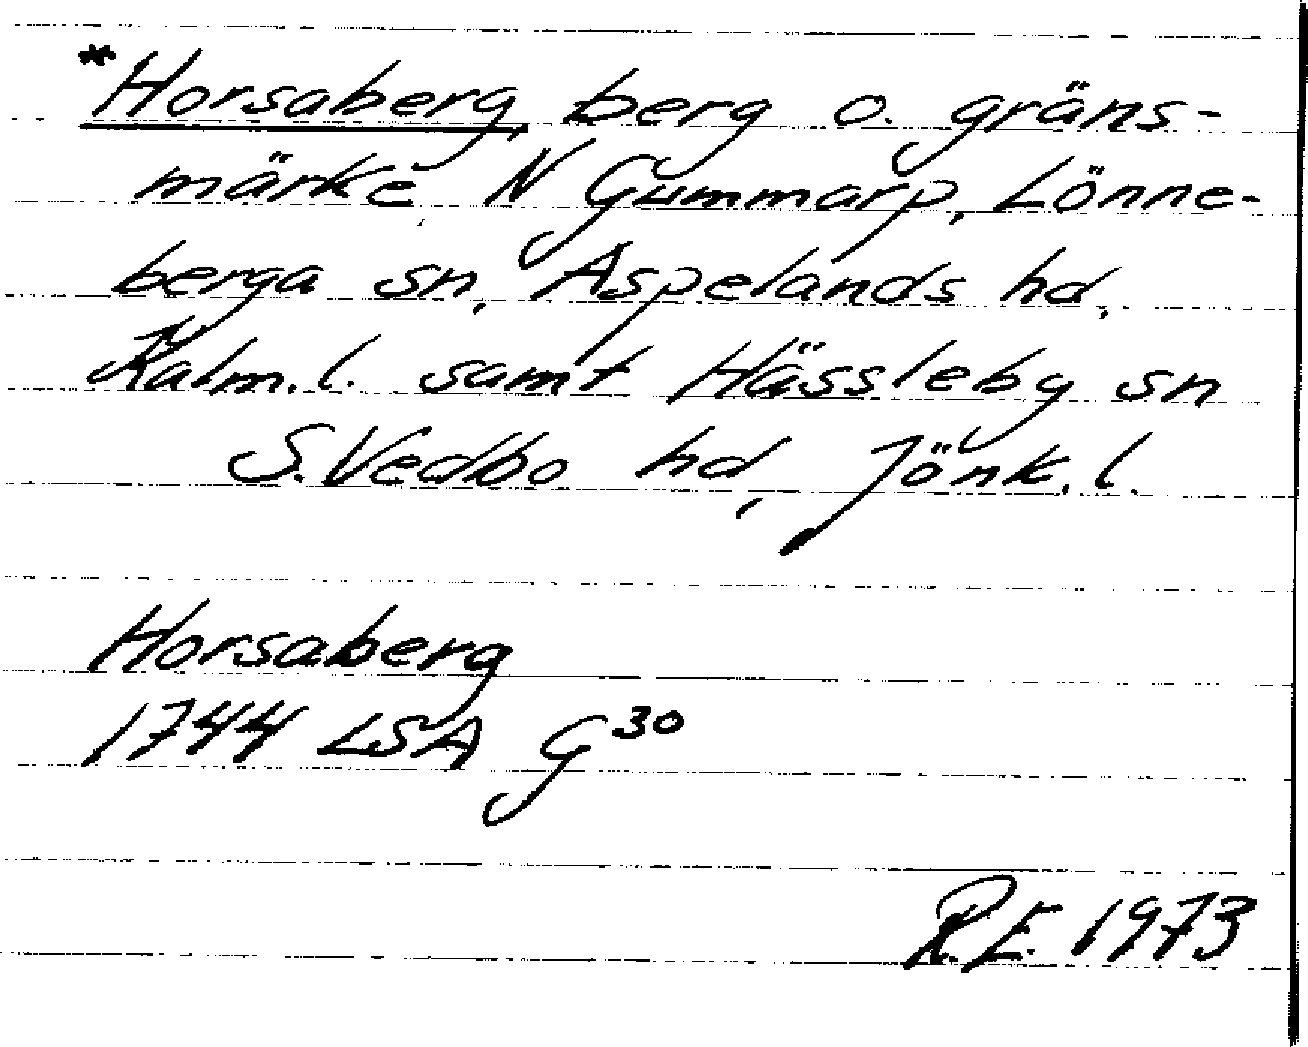 *Horsaberg, berg o. gräns-
märke N Gummarp, Lönne-
berga sn, Aspelands hd,
Kalm.l. samt Hässleby sn
S.Vedbo hd, Jönk.l.
Horsaberg
1744 LSA G³⁰
R.E. 1973